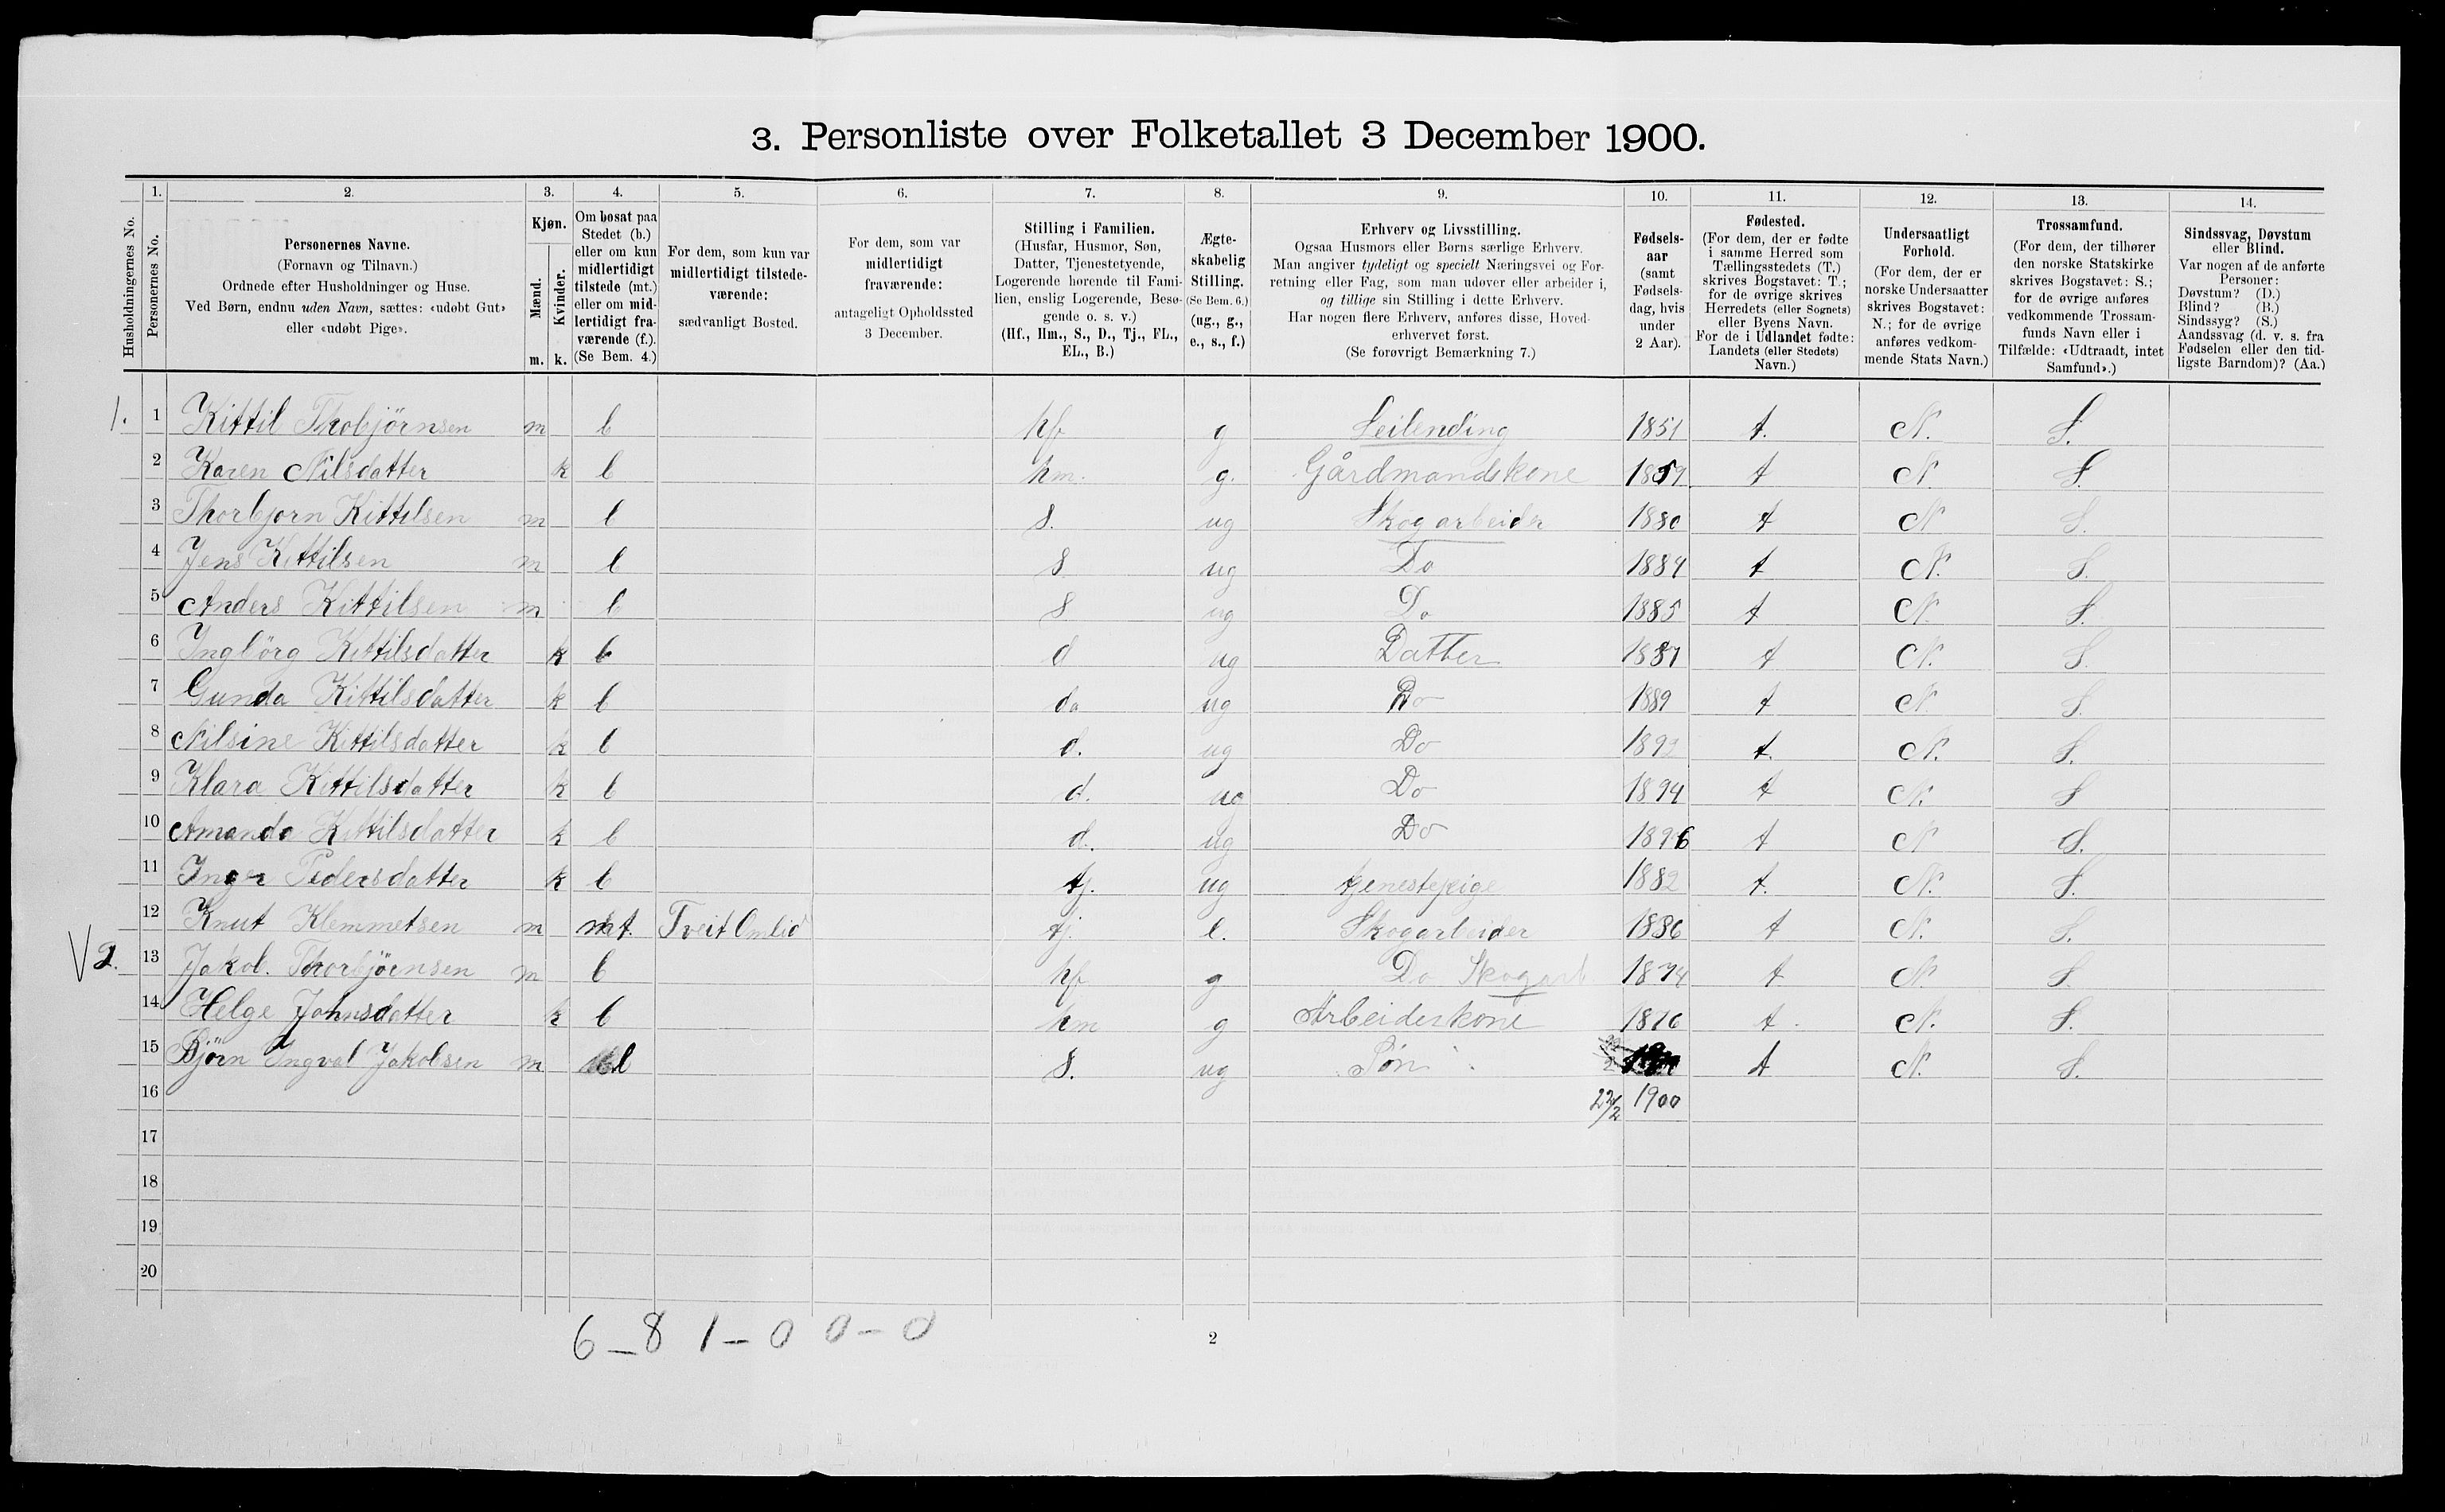 3. Personliste over Folketallet 3 December 1900.
1. 2. 3. 4. 5. 6. 7. 8. 9. 10. 11. 12. 13. 14.
Husholdningernes No.
Personernes No.
Personernes Navne.
(Fornavn og Tilnavn.)
Ordnede efter Husholdninger og Huse.
Ved Børn, endnu uden Navn, sættes: «udøbt Gut»
eller «udøbt Pige».
Kjøn.
Mænd.
Kvinder.
m. k.
Om bosat paa
Stedet (b.)
eller om kun
midlertidigt
tilstede (mt.)
eller om mid-
lertidigt fra-
værende (f.).
(Se Bem. 4.)
For dem, som kun var
midlertidigt tilstede-
værende:
sædvanligt Bosted.
For dem, som var
midlertidigt
fraværende:
antageligt Opholdssted
3 December.
Stilling i Familien.
(Husfar, Husmor, Søn,
Datter, Tjenestetyende,
Logerende hørende til Fami-
lien, enslig Logerende, Besø-
gende o. s. v.)
(Hf., Hm., S., D., Tj., FL.,
EL., B.)
Ægte-
skabelig
Stilling.
(Se Bem. 6.)
(ug., g.,
e., s., f.)
Erhverv og Livsstilling.
Ogsaa Husmors eller Børns særlige Erhverv.
Man angiver tydeligt og specielt Næringsvei og For-
retning eller Fag, som man udøver eller arbeider i,
og tillige sin Stilling i dette Erhverv.
Har nogen flere Erhverv, anføres disse, Hoved-
erhvervet først.
(Se forøvrigt Bemærkning 7.)
Fødsels-
aar
(samt
Fødsels-
dag, hvis
under
2 Aar).
Fødested.
(For dem, der er fødte
i samme Herred som
Tællingsstedets (T.)
skrives Bogstavet: T.;
for de øvrige skrives
Herredets (eller Sognets)
eller Byens Navn.
For de i Udlandet fødte:
Landets (eller Stedets)
Navn.)
Undersaatligt
Forhold.
(For dem, der er
norske Undersaatter
skrives Bogstavet:
N.; for de øvrige
anføres vedkom-
mende Stats Navn.)
Trossamfund.
(For dem, der tilhører
den norske Statskirke
skrives Bogstavet: S.;
for de øvrige anføres
vedkommende Trossam-
funds Navn eller i
Tilfælde: «Udtraadt, intet
Samfund».)
Sindssvag, Døvstum
eller Blind.
Var nogen af de anførte
Personer:
Døvstum? (D.)
Blind? (B.)
Sindssyg? (S.)
Aandssvag (d. v. s. fra
Fødselen eller den tid-
ligste Barndom)? (Aa.)
1. 1 Kittil Thobjörnsen m b hf g Leilending 1851 t. N. S.
2 Karen Nilsdatter k b hm. g. Gårdmandskone 1859 t N S.
3 Thorbjorn Kittilsen m b s. ug Skogarbeider 1880 t N S.
4 Jens Kittilsen m b s ug Do 1884 t N. S.
5 Anders Kittilsen m b s ug Do 1885 t N. S.
6 Ingbörg Kittilsdatter k b d ug Datter 1887 t N. S.
7 Gunda Kittilsdatter k b da ug Do 1889 t N. S.
8 Nilsine Kittilsdatter k b d. ug Do 1892 t. N. S.
9 Klara Kittilsdatter k b d. ug Do 1894 t N. S
10 Amanda Kittilsdatter k b d. ug Do 1896 t N S.
11 Inger Pedersdatter k b tj. ug tjenestepige 1882 t. N. S.
12 Knut Klemmetsen m mt. Tveit Omlid tj. e. Skogarbeider 1836 t N. S.
V 2. 13 Jakob. Thorbjörnsen m b hf g Do Skogarb 1874 t N. S.
14 Helge Johnsdatter k b hm g Arbeiderkone 1876 t. N. S.
15 Björn Ingval Jakobsen m b s. ug Søn t N. S.
16 22/2 1900
17
18
19
20
6 – 8 1 – 0 0 – 0
2